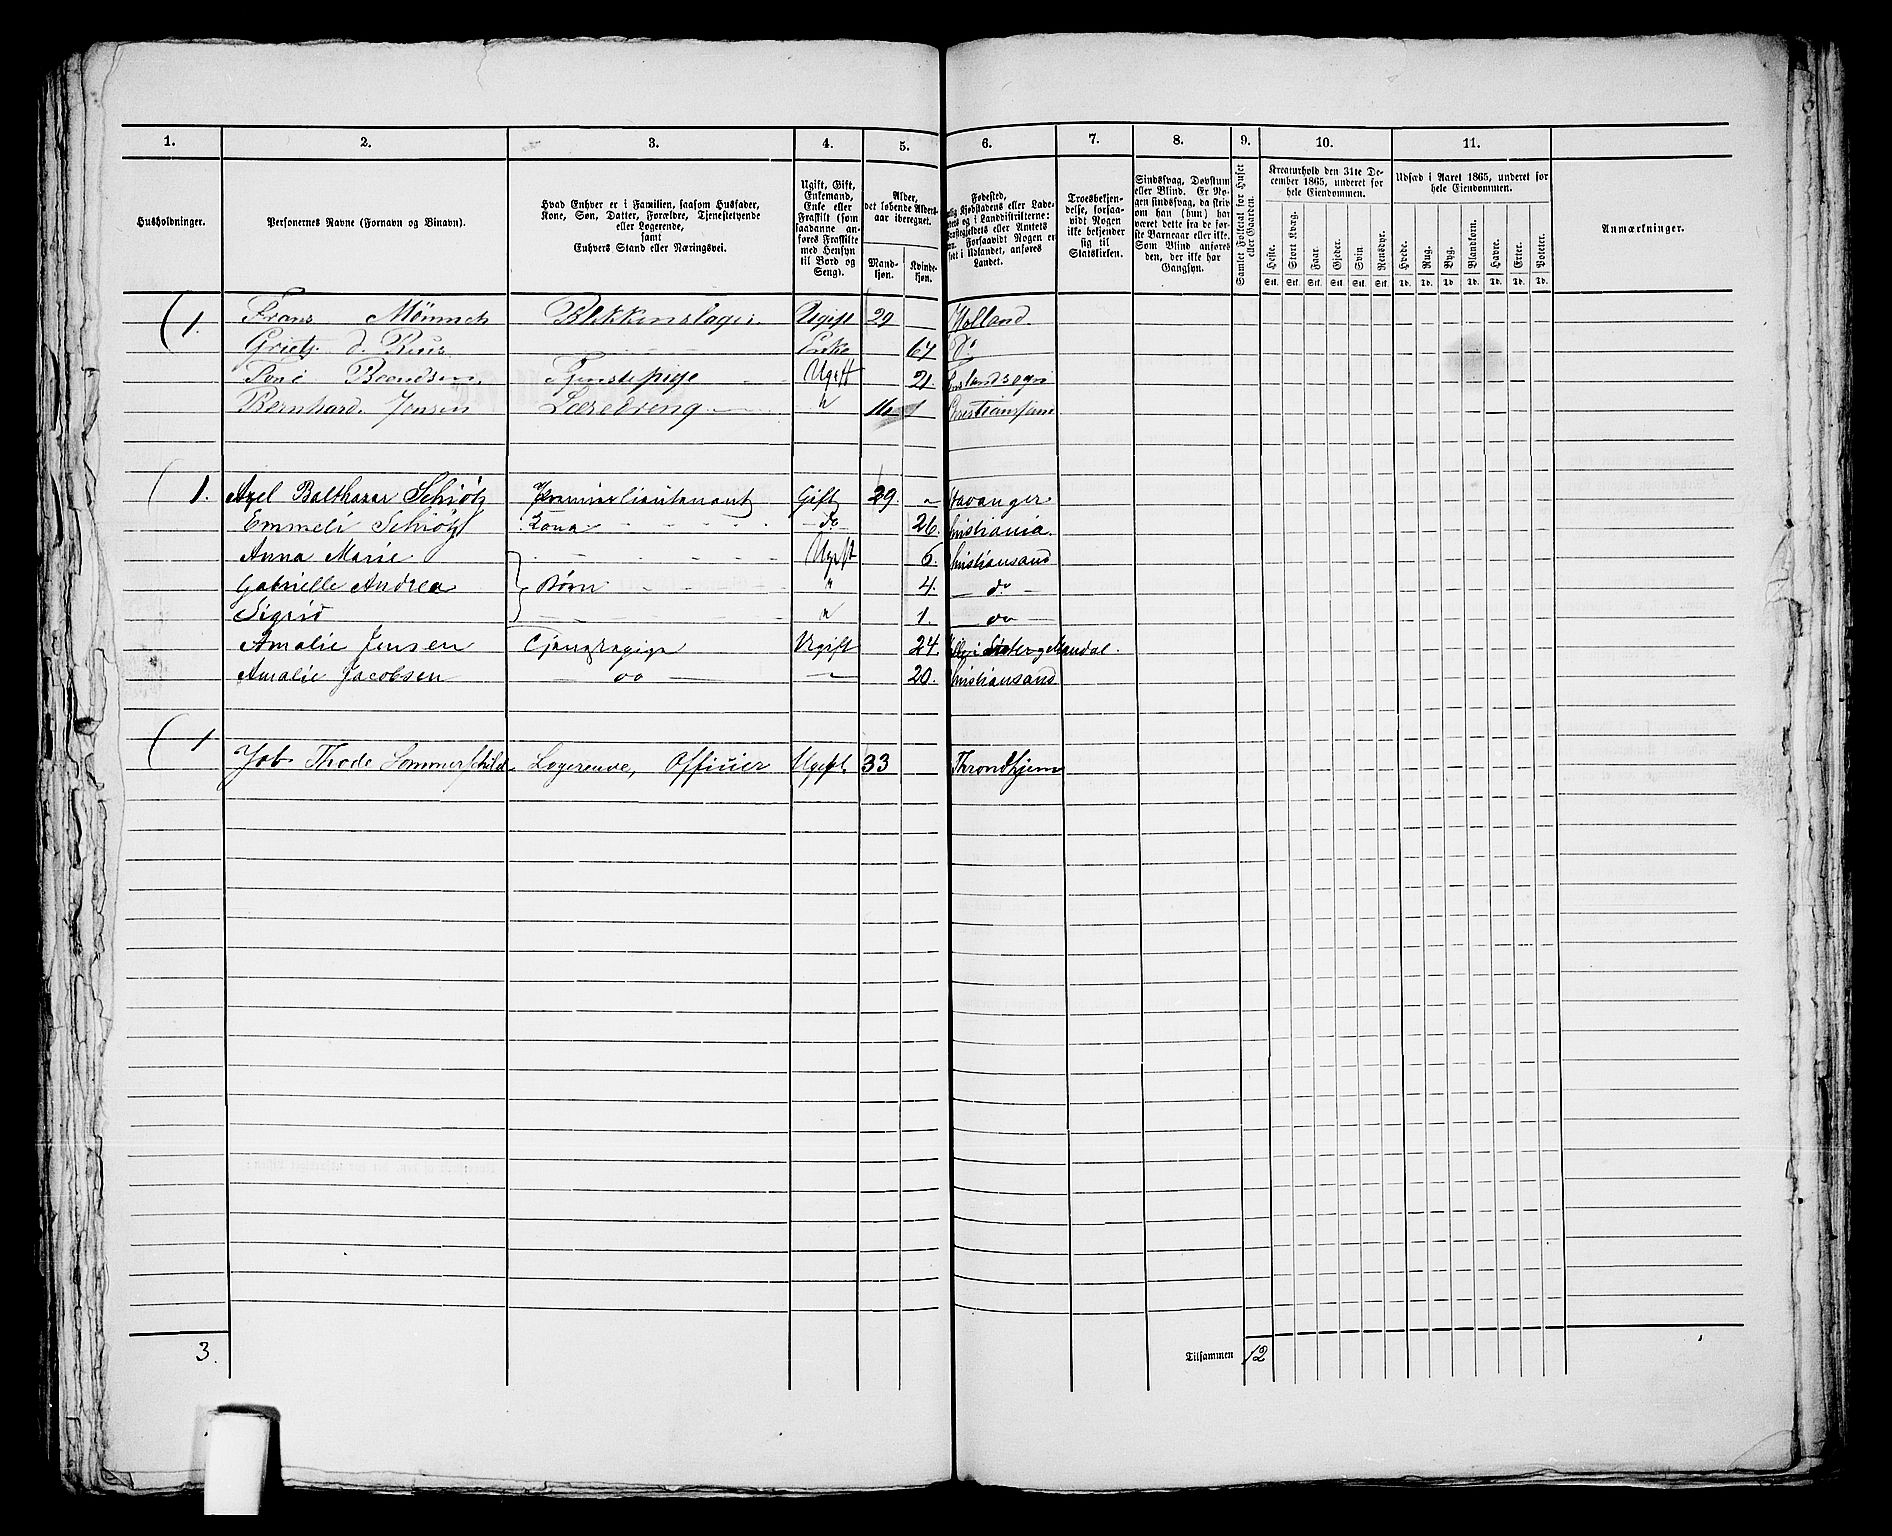 1. 2. 3. 4. 5. 6. 7. 8. 9. 10. 11.
Husholdninger.
Personernes Navne (Fornavn og Binavn).
Hvad Enhver er i Familien, saasom Husfader,
Kone, Søn, Datter, Forældre, Tjenestetyende
eller Logerende,
samt
Enhvers Stand eller Næringsvei.
Ugift, Gift,
Enkemand,
Enke eller
Fraskilt (som
saadanne an-
føres Fraskilte
med Hensyn
til Bord og
Seng).
Alder,
det løbende Alders-
aar iberegnet.
Mand-
kjøn.
Kvinde-
kjøn.
Fødested,
Kjøbstadens eller Lade-
og i Landdistrikterne:
eller Amtets
Forsaavidt Nogen er
i Udlandet, anføres
Landet.
Troesbekjen-
delse, forsaa-
vidt Nogen
ikke bekjender
sig til
Statskirken.
Sindssvag, Døvstum
eller Blind. Er No-
gen sindssvag, da skriv
om han (hun) har
været dette fra de før-
ste Barneaar eller ikke.
Som Blind anføres
den, der ikke har
Gangsyn.
Samlet Folketal for Huset
eller Gaarden.
Kreaturhold den 31te De-
cember 1865, underet for
hele Eiendommen.
Heste. Stort Kvæg. Faar. Gjeder. Svin Rensdyr.
Stk. Stk. Stk. Stk. Stk. Stk.
Udsæd i Aaret 1865, underet for
hele Eiendommen.
Hvede. Rug. Byg. Blandkorn. Havre. Erter. Poteter.
Td. Td. Td. Td. Td. Td. Td.
Anmærkninger.
1. Frans Mønnich Blikkenslager. Ugift 29 Holland.
Grietz. d. Enke 67 Do
Berndsen. Tjenstepige Ugift 21.
Bernhard Jensen Læredreng " 16
1. Axel Balthazar Schiötz Premierlieutenant Gift 29. Stavanger.
Emmeli Schiötz Kone do 26. Christiania.
Anna Marie Ugift 6. Christiansand
Gabrielle Andrea Børn " 4. do
Sigrid " 1. do
Amalie Jensen Ugift 24. Mandal.
Amalie Jacobsen do 20. Christiansand
1 Job Thode Sommerschild Logerende, Officier Ugift. 33 Throndhjem
3. Tilsammen 12